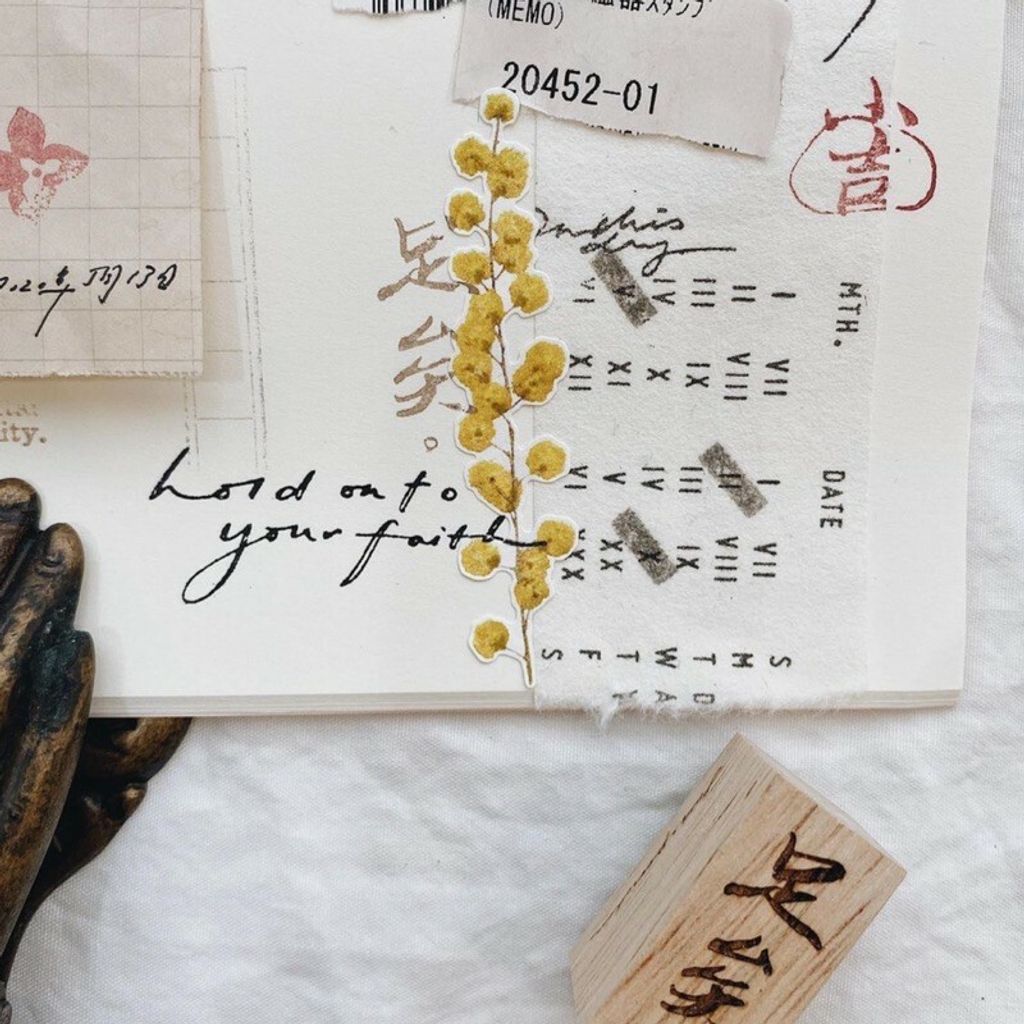 (MEMO)
20452-01
吉
on this
day
MTH.
I II III IV V VI
VII VIII IX X XI XII
DATE
I II III IV V VI
VII VIII IX X XX XXX
S M T W T F S
D A Y
足矣。
hold on to
your faith
ity.
足矣